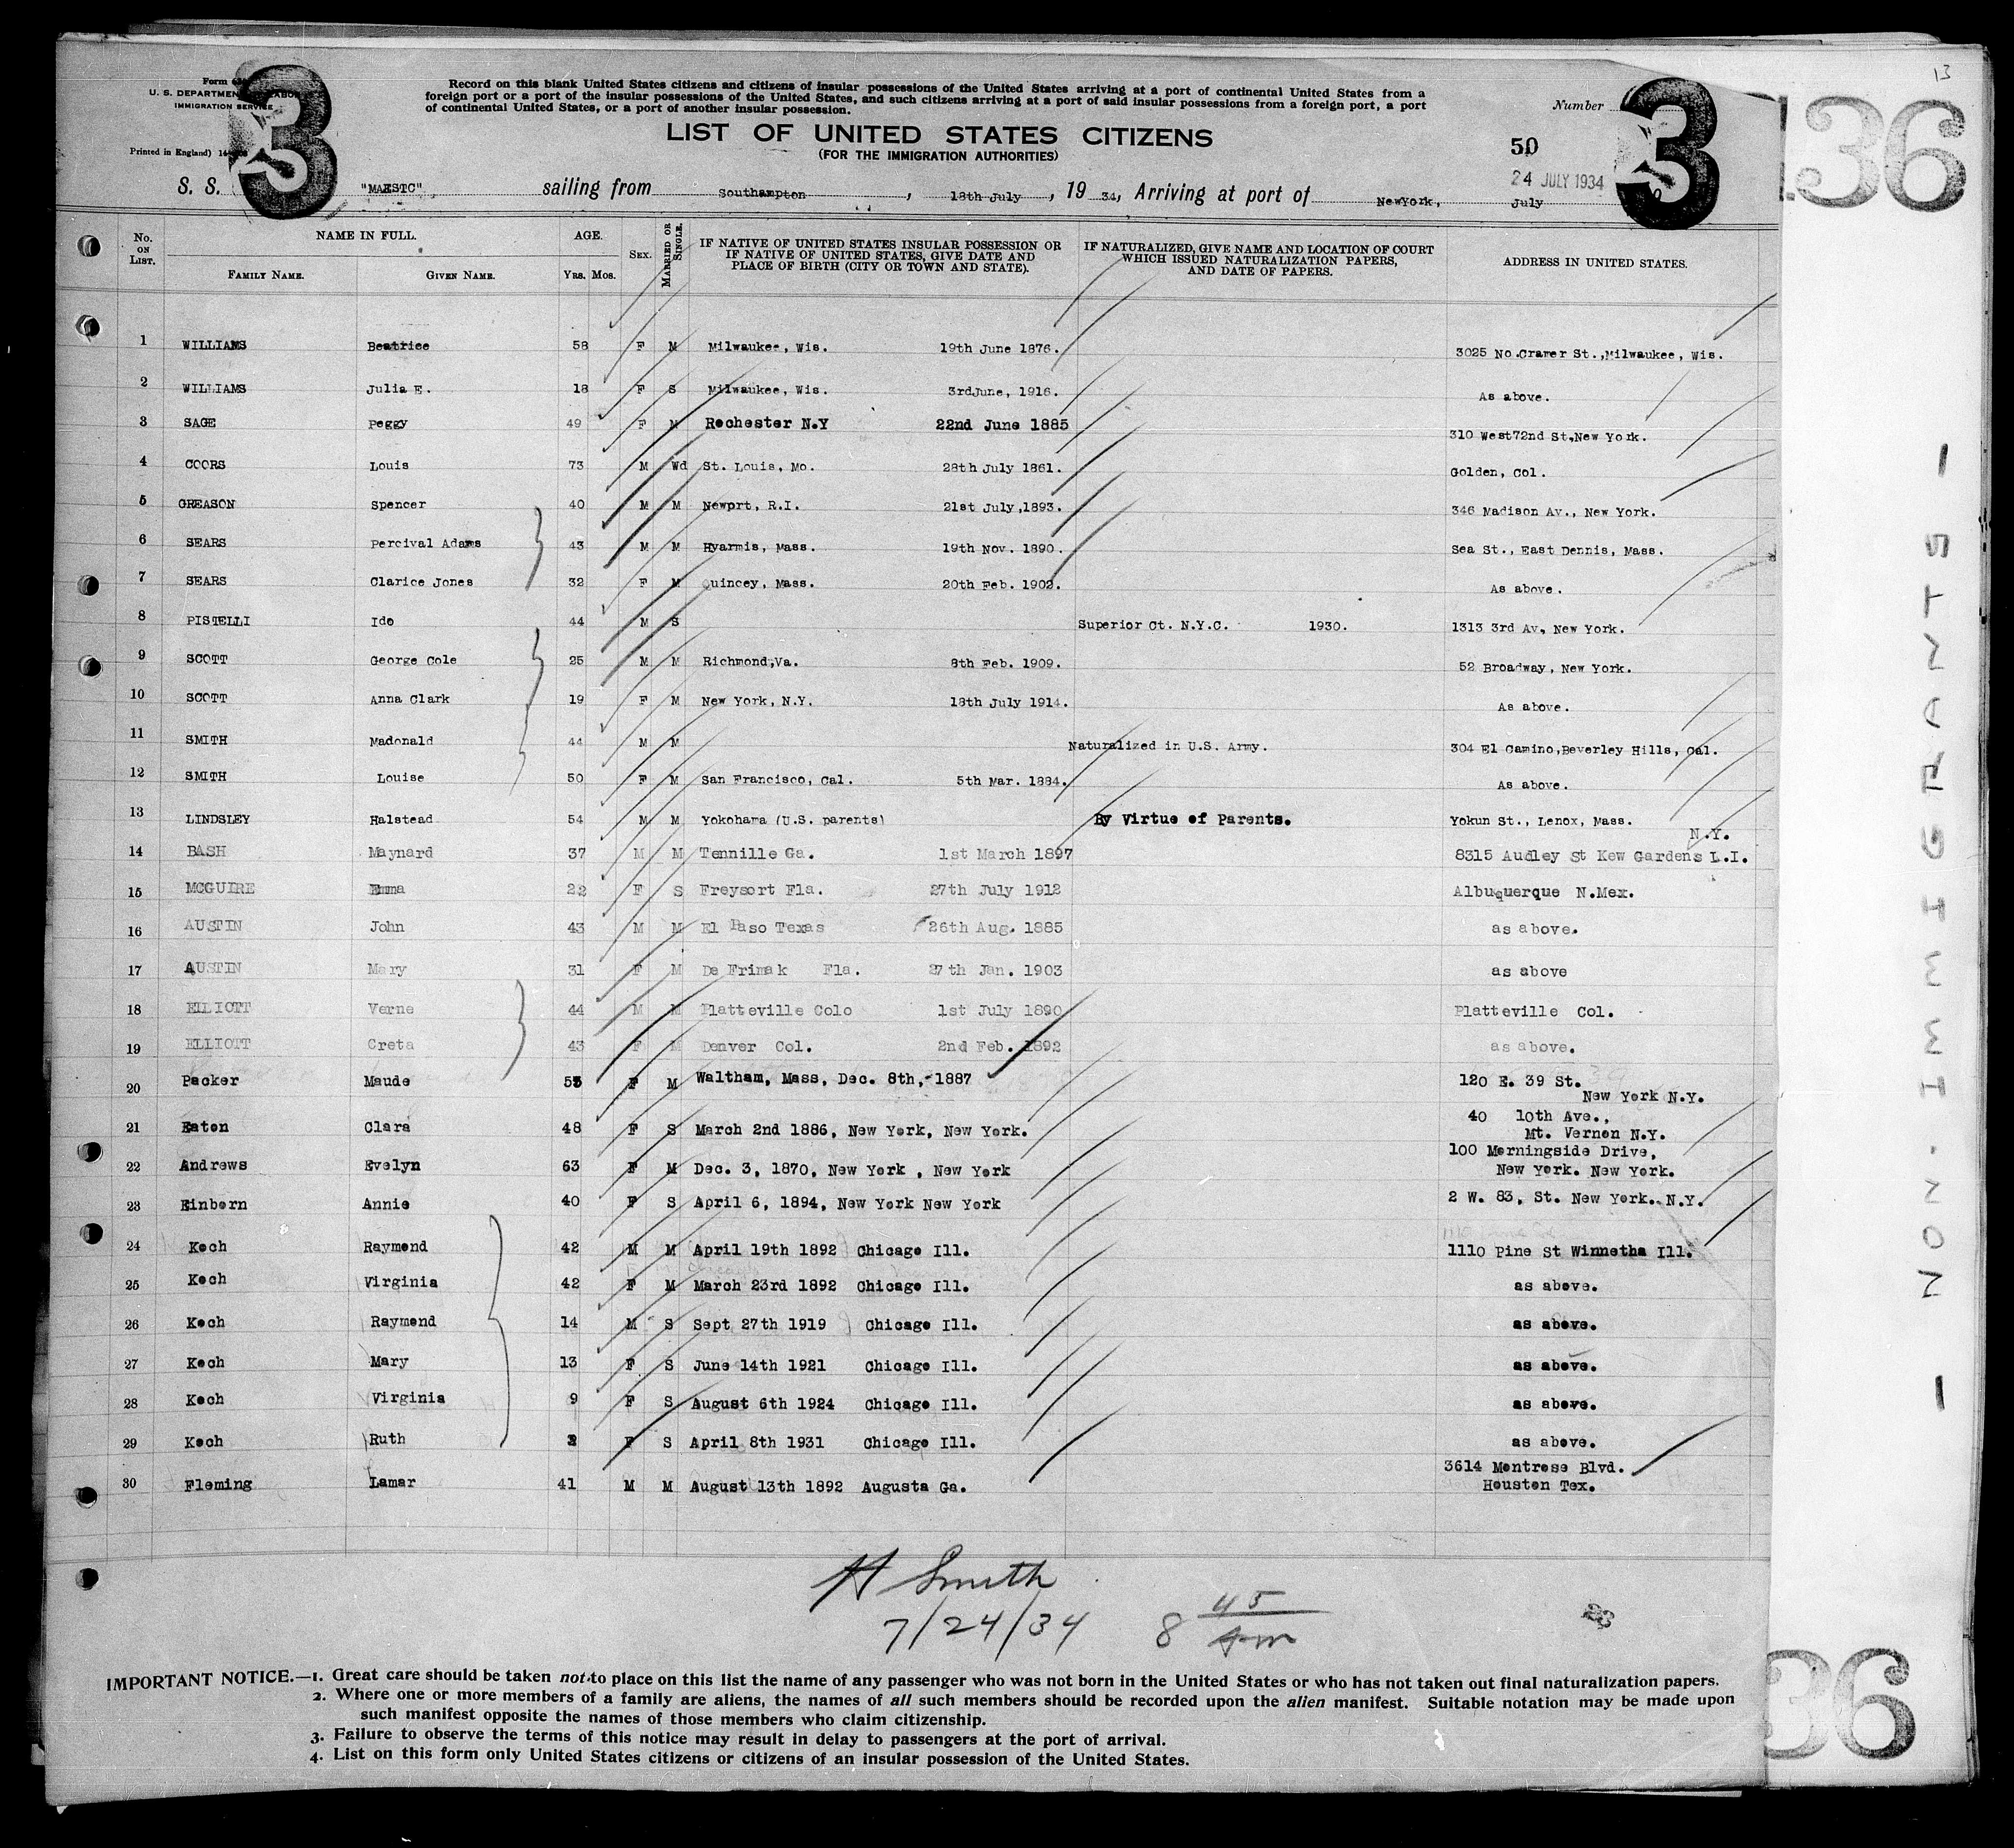 13
Form
U. S. DEPARTMENT LABOR
IMMIGRATION SERVICE
Printed in England)
3
Record on this blank United States citizens and citizens of insular possessions of the United States arriving at a port of continental United States from a
foreign port or a port of the insular possessions of the United States, and such citizens arriving at a port of said insular possessions from a foreign port, a port
of continental United States, or a port of another insular possession.
LIST OF UNITED STATES CITIZENS
(FOR THE IMMIGRATION AUTHORITIES)
Number
3
136
50
24 JULY 1934
S. S. "MAESTC", sailing from Southampton, 18th July, 19 34, Arriving at port of NewYork, July
No. ON LIST. NAME IN FULL. AGE. SEX. MARRIED OR SINGLE. IF NATIVE OF UNITED STATES INSULAR POSSESSION OR IF NATIVE OF UNITED STATES, GIVE DATE AND PLACE OF BIRTH (CITY OR TOWN AND STATE). IF NATURALIZED, GIVE NAME AND LOCATION OF COURT WHICH ISSUED NATURALIZATION PAPERS, AND DATE OF PAPERS. ADDRESS IN UNITED STATES.
FAMILY NAME. GIVEN NAME. YRS. MOS.
1 WILLIAMS Beatrice 58 F M Milwaukee, Wis. 19th June 1876. 3025 No.Cramer St.,Milwaukee, Wis.
2 WILLIAMS Julia E. 18 F S Milwaukee, Wis. 3rdJune, 1916. As above.
3 SAGE Peggy 49 F M Rochester N.Y 22nd June 1885 310 West72nd St,New York.
4 COORS Louis 73 M Wd St. Louis, Mo. 28th July 1861. Golden, Col.
5 GREASON Spencer 40 M M Newprt, R.I. 21st July,1893. 346 Madison Av., New York.
6 SEARS Percival Adams 43 M M Hyarmis, Mass. 19th Nov. 1890. Sea St., East Dennis, Mass.
7 SEARS Clarice Jones 32 F M Quincey, Mass. 20th Feb. 1902. As above.
8 PISTELLI Ido 44 M S Superior Ct. N.Y.C. 1930. 1313 3rd Av, New York.
9 SCOTT George Cole 25 M M Richmond,Va. 8th Feb. 1909. 52 Broadway, New York.
10 SCOTT Anna Clark 19 F M New York, N.Y. 18th July 1914. As above.
11 SMITH Madonald 44 M M Naturalized in U.S. Army. 304 El Camino,Beverley Hills, Cal.
12 SMITH Louise 50 F M San Francisco, Cal. 5th Mar. 1884. As above.
13 LINDSLEY Halstead 54 M M Yokohama (U.S. parents) By Virtue of Parents. Yokun St., Lenox, Mass.
N.Y.
14 BASH Maynard 37 M M Tennille Ga. 1st March 1897 8315 Audley St Kew Gardens L.I.
15 MCGUIRE Emma 22 F S Freysort Fla. 27th July 1912 Albuquerque N.Mex.
16 AUSTIN John 43 M M El Paso Texas 26th Aug. 1885 as above.
17 AUSTIN Mary 31 F M De Frimak Fla. 27th Jan. 1903 as above
18 ELLIOTT Verne 44 M M Platteville Colo 1st July 1890 Platteville Col.
19 ELLIOTT Creta 43 F M Denver Col. 2nd Feb. 1892 as above.
20 Packer Maude F M Waltham, Mass, Dec. 8th, 1887 120 E. 39 St.
New York N.Y.
21 Eaton Clara 48 F S March 2nd 1886, New York, New York. 40 10th Ave.,
Mt. Vernon N.Y.
22 Andrews Evelyn 63 F M Dec. 3, 1870, New York , New York 100 Morningside Drive,
New York. New York.
23 Einborn Annie 40 F S April 6, 1894, New York New York 2 W. 83, St. New York. N.Y.
24 Koch Raymond 42 M M April 19th 1892 Chicago Ill. 1110 Pine St Winnetha Ill.
25 Koch Virginia 42 F M March 23rd 1892 Chicago Ill. as above.
26 Koch Raymond 14 M S Sept 27th 1919 Chicago Ill. as above.
27 Koch Mary 13 F S June 14th 1921 Chicago Ill. as above.
28 Koch Virginia 9 F S August 6th 1924 Chicago Ill. as above.
29 Koch Ruth F S April 8th 1931 Chicago Ill. as above.
30 Fleming Lamar 41 M M August 13th 1892 Augusta Ga. 3614 Montrose Blvd.
Houston Tex.
H Smith
7/24/34 8 45 Am
IMPORTANT NOTICE.—1. Great care should be taken not to place on this list the name of any passenger who was not born in the United States or who has not taken out final naturalization papers.
2. Where one or more members of a family are aliens, the names of all such members should be recorded upon the alien manifest. Suitable notation may be made upon
such manifest opposite the names of those members who claim citizenship.
3. Failure to observe the terms of this notice may result in delay to passengers at the port of arrival.
4. List on this form only United States citizens or citizens of an insular possession of the United States.
- NON-IMMIGRANTS -
36